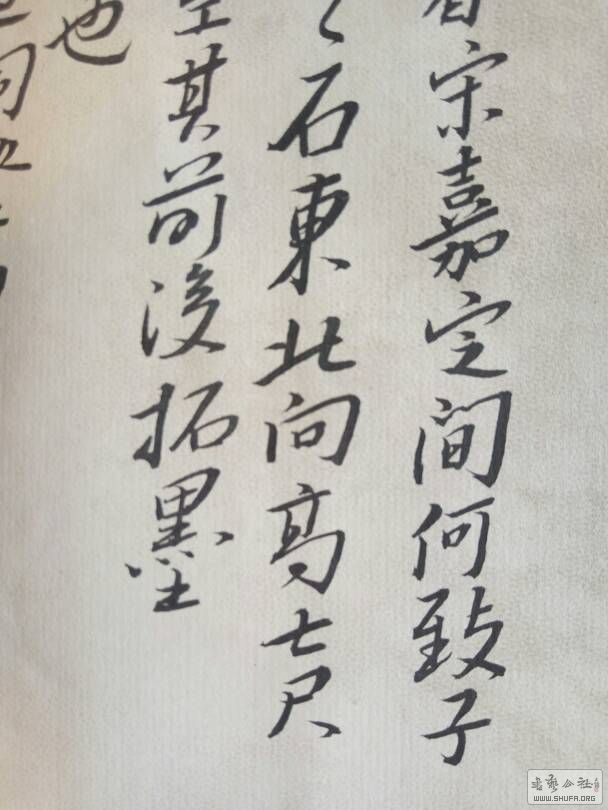 宋嘉定间何致子
石東北向高七尺
其前後拓墨
也
WWW.SHUFA.ORG